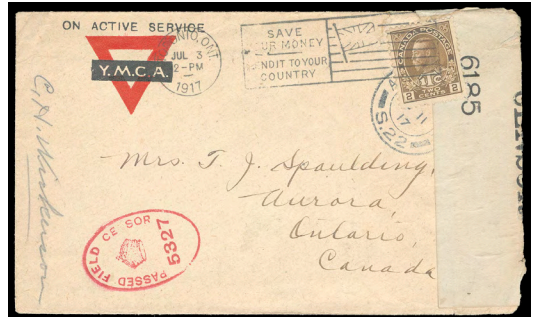 ON ACTIVE SERVICE
Y.M.C.A.
ONT.
JUL 3
2-PM
1917
SAVE
YOUR MONEY
LEND IT TO YOUR
COUNTRY
CANADA POSTAGE
2 TWO CENTS 2
1TC
S.22
17
6185
C. H.
Mrs. T. J. Spaulding,
Aurora,
Ontario,
Canada
PASSED FIELD CE SOR
5327